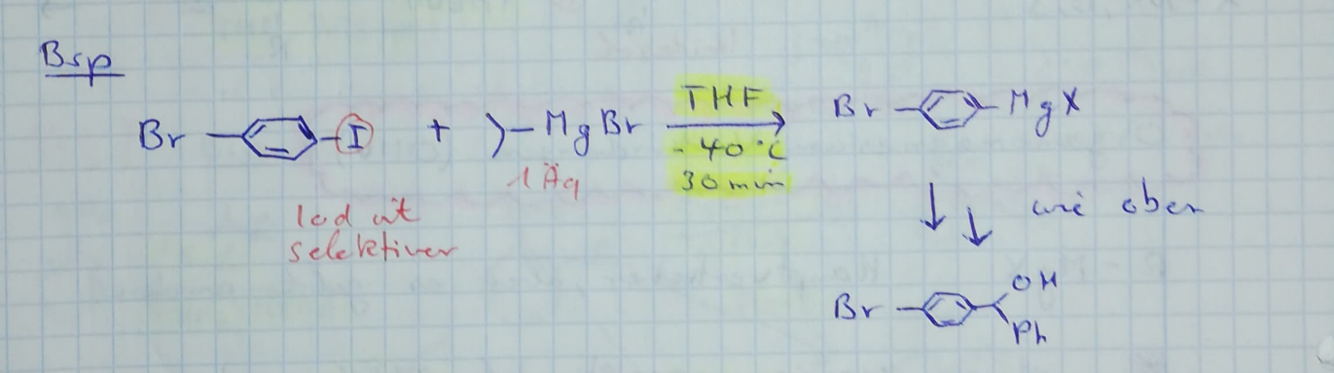 Bsp
Br I + MgBr THF Br MgX
- 40°C
1 Äq 30 min
Iod ist
selektiver
wie oben
Br OH
Ph